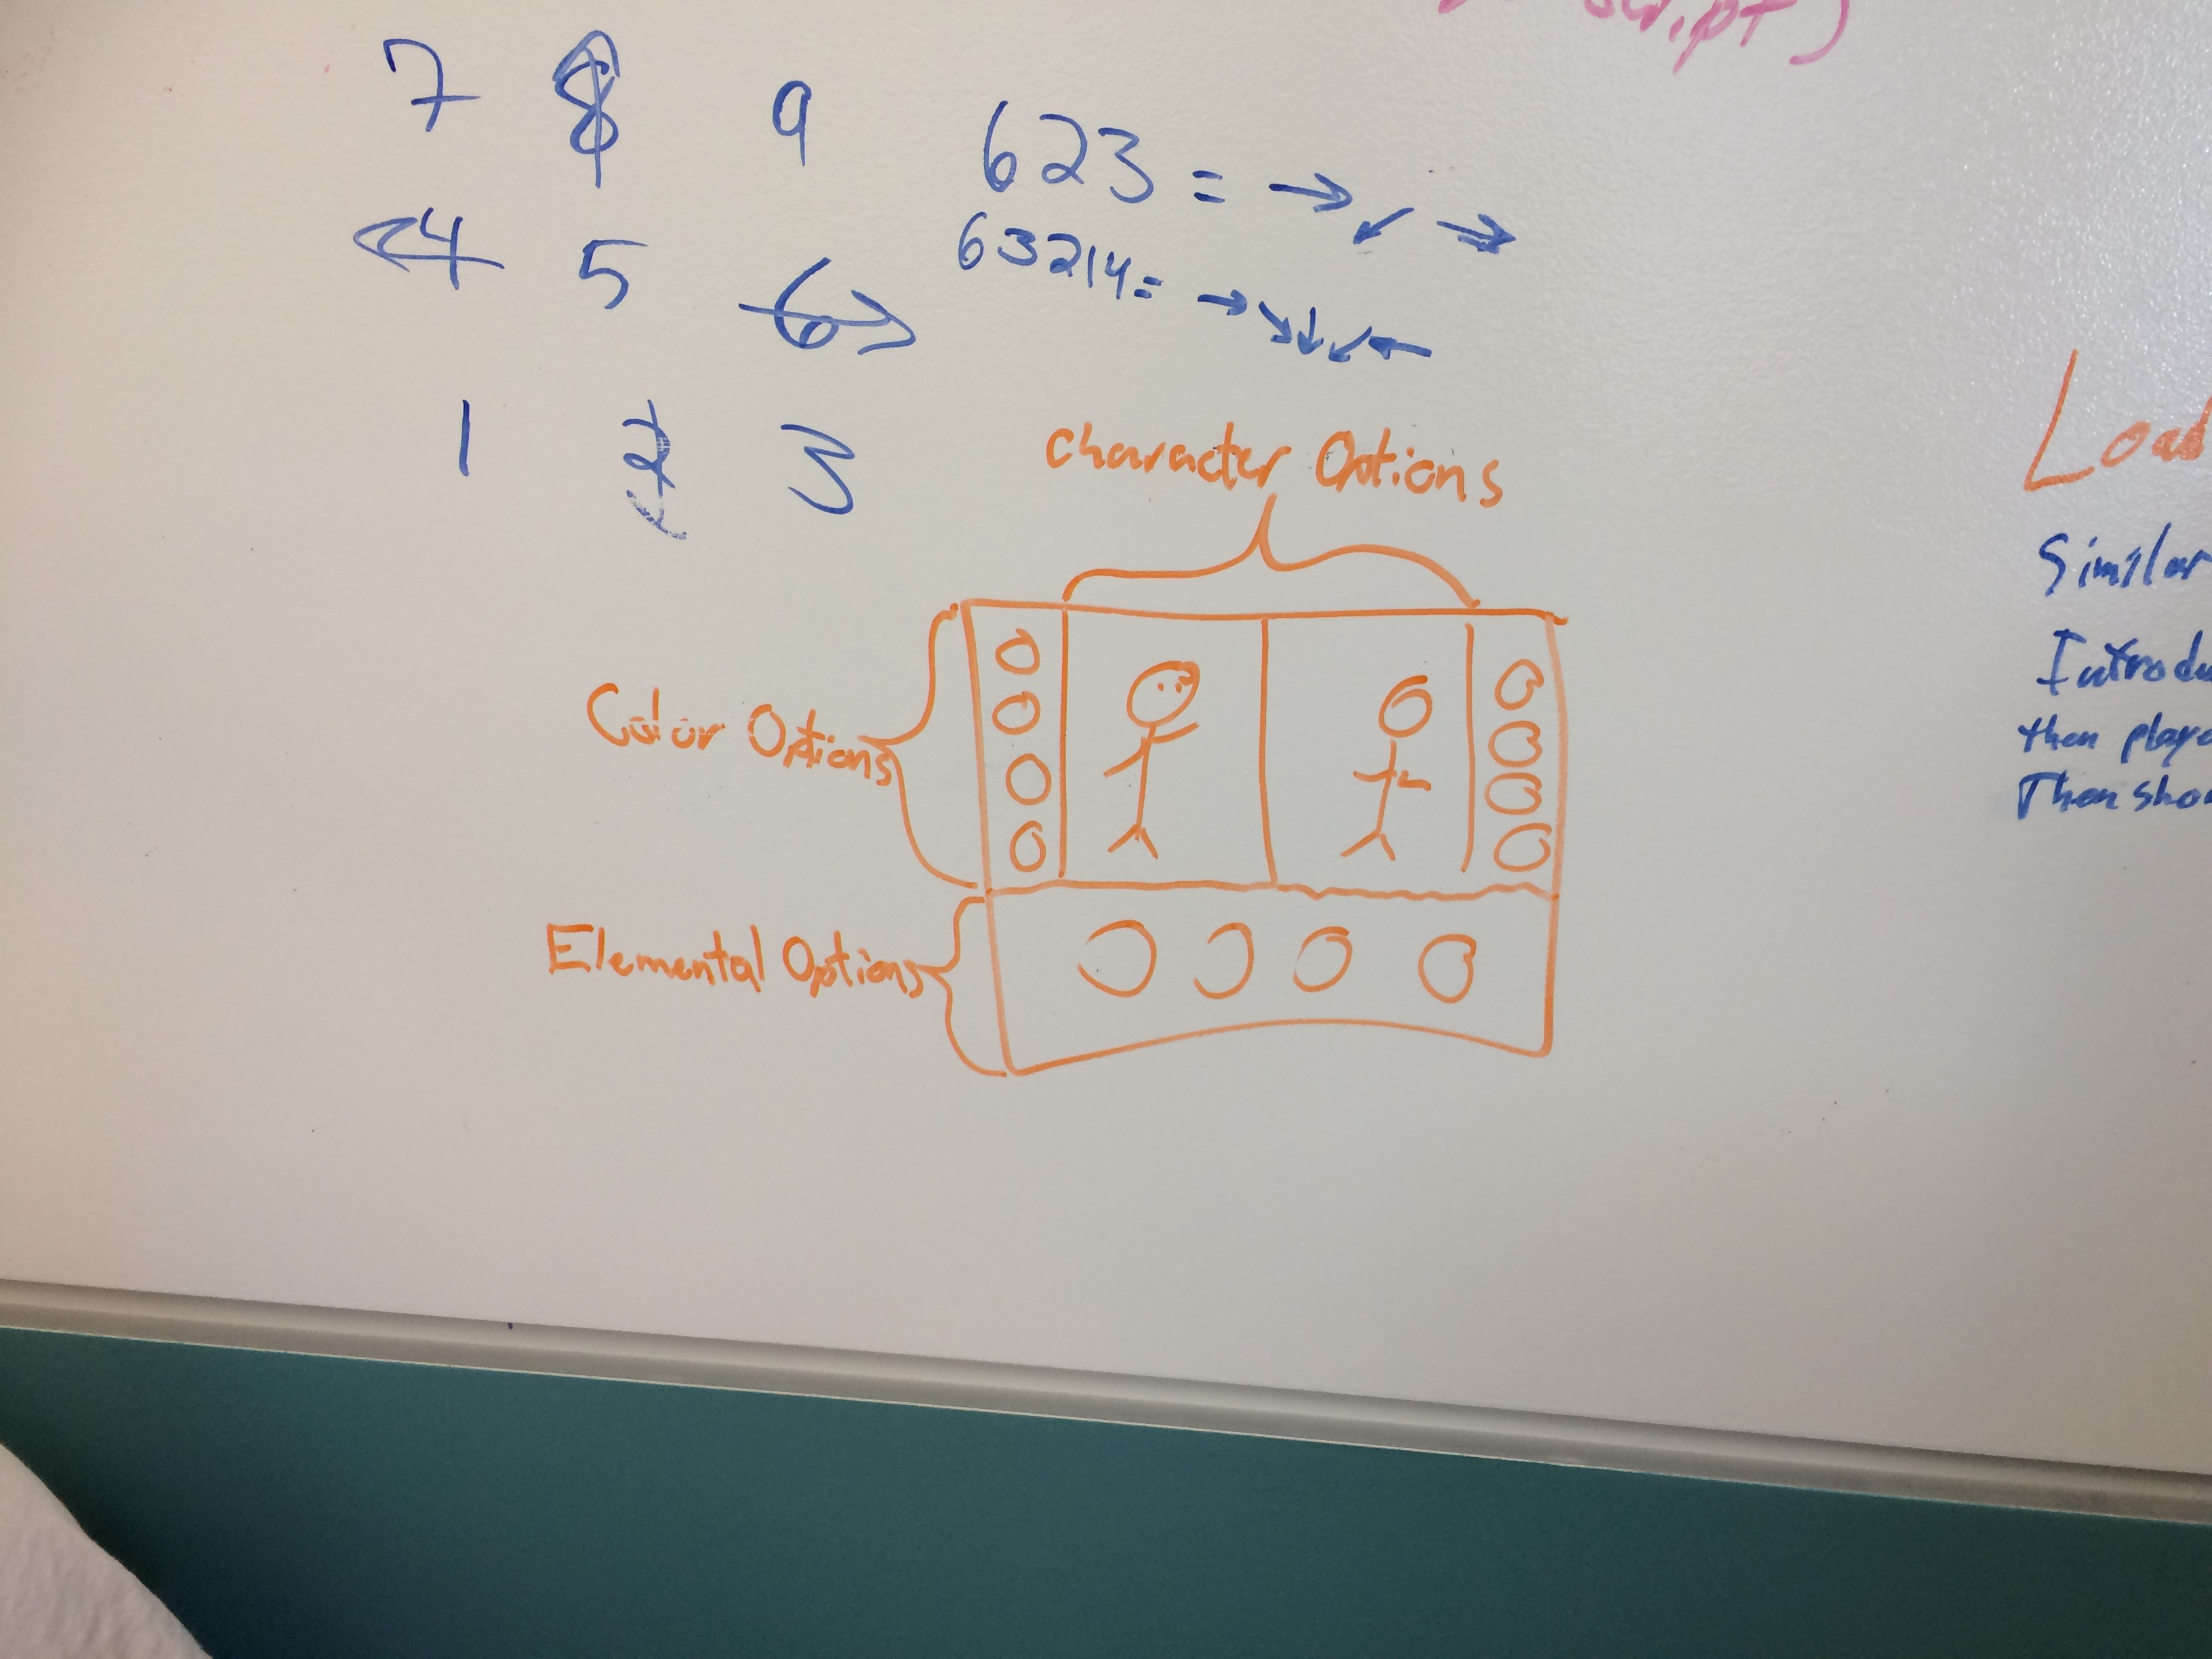 script)
7 8 9
623 = → ↙ →
4 5 6
63214= → ↘ ↓ ↙ ←
1 2 3
Character Options
Color Options
Elemental Options
Load
Similar
Introdu
then playe
Then sho